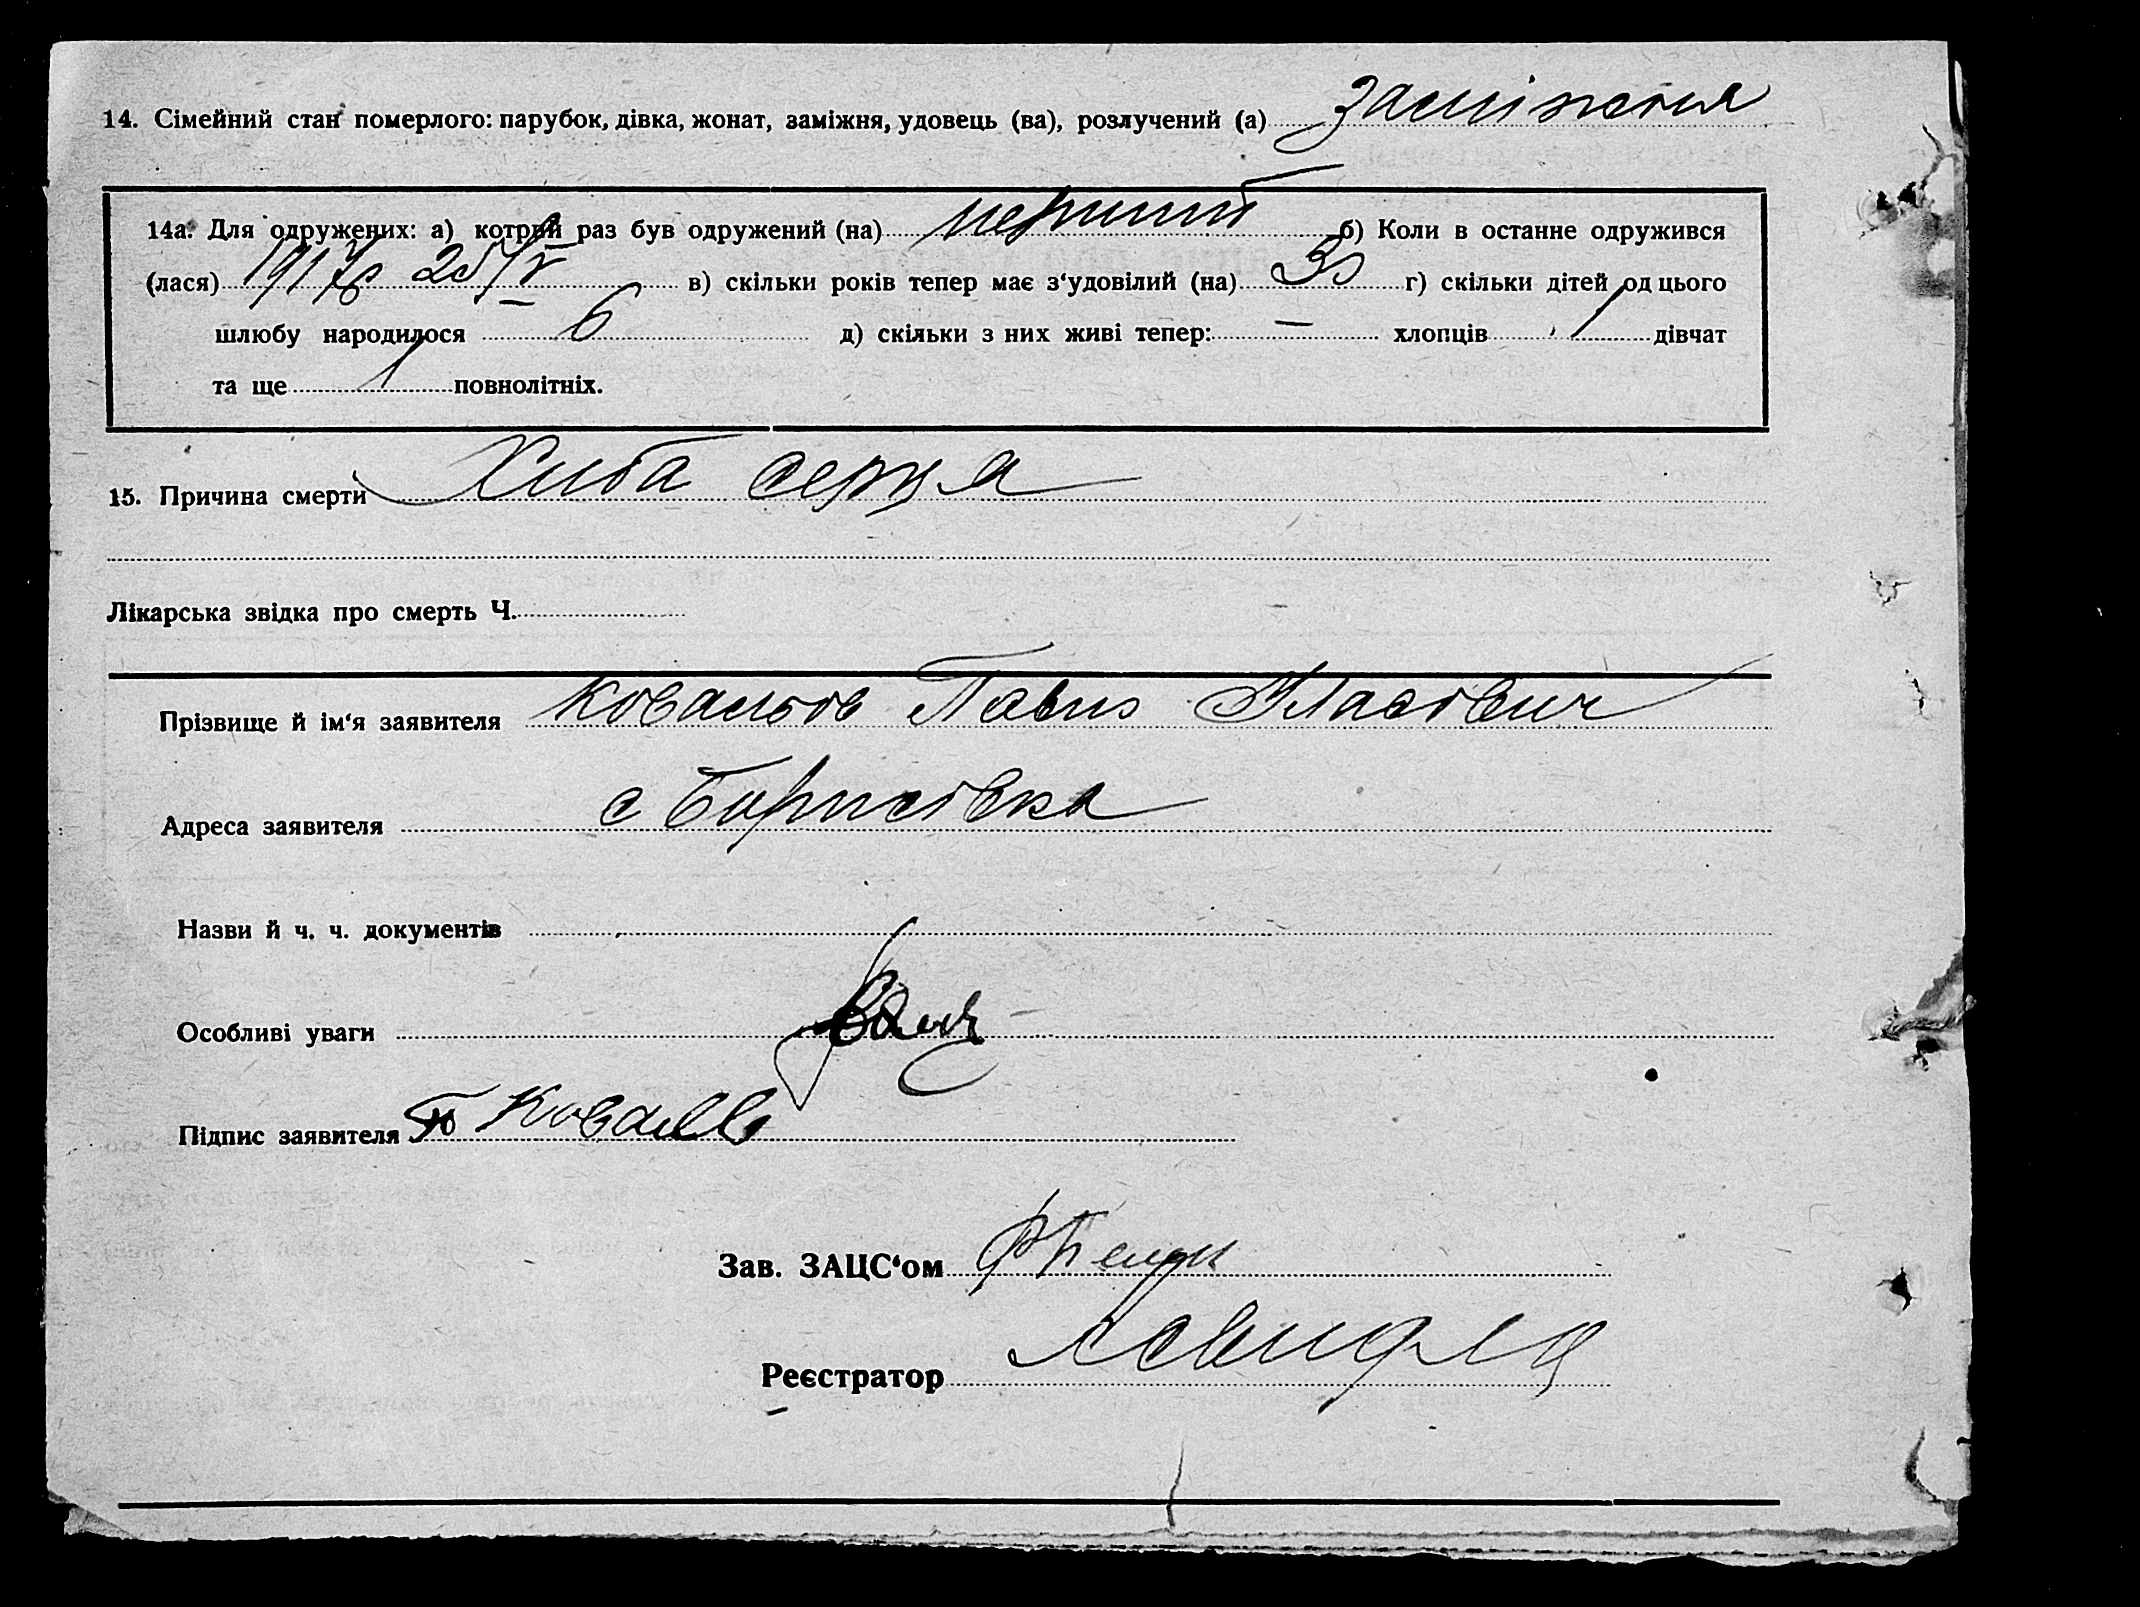 14. Сімейний стан померлого: парубок, дівка, жонат, заміжня, удовець (ва), розлучений (а) заміжня
14а. Для одружених: а) котрий раз був одружений (на) перший б) Коли в останне одружився
(лася) 1917р 25/V в) скільки років тепер має з‘удовілий (на) г) скільки дітей од цього
шлюбу народилося 6 д) скільки з них живі тепер: — хлопців 1 дівчат
та ще 1 повнолітніх.
15. Причина смерти Хиба серця
Лікарська звідка про смерть Ч.
Прізвище й ім‘я заявителя Ковальов Павло Власович
Адреса заявителя с Борисівка
Назви й ч. ч. документів
Особливі уваги
Підпис заявителя Ковалів
Зав. ЗАЦС‘ом
Реєстратор